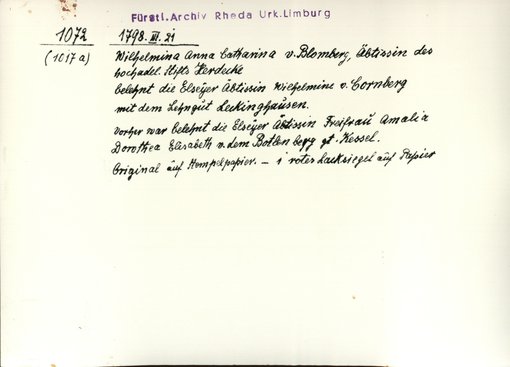 Fürstl. Archiv Rheda Urk. Limburg
1072 1798. III. 21
(1017a) Wilhelmina Anna Catharina v. Blomberg, Äbtissin des
hochadel. Stifts Herdecke
belehnt die Elseyer Äbtissin Wilhelmine v. Cornberg
mit dem Lehngut Leckinghausen.
Vorher war belehnt die Elseyer Äbtissin Freifrau Amalia
Dorothea Elisabeth v. dem Botlenberg gt. Kessel.
Original auf Stempelpapier. – 1 rotes Lacksiegel auf Papier